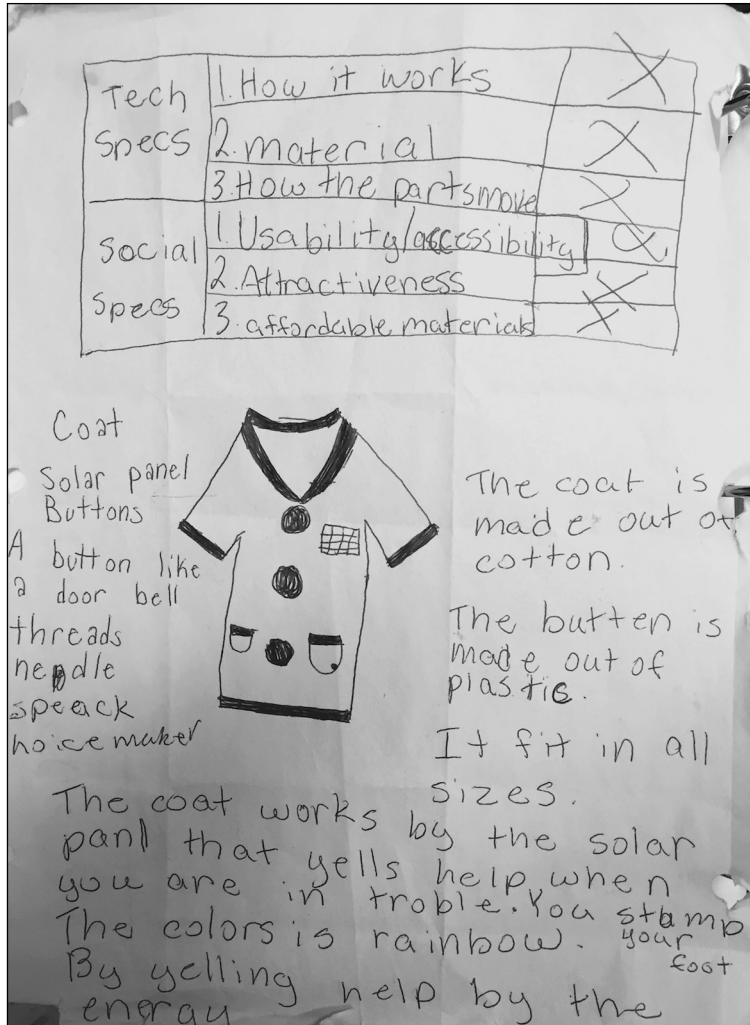 Tech
Specs
1. How it works
X
2. material
X
3. How the parts move
X
Social
Specs
1. Usability/accessibility
X
2. Attractiveness
X
3. affordable materials
X
Coat
Solar panel
Buttons
A button like
a door bell
threads
needle
speack
hoice maker
The coat is
made out of
cotton.
The butten is
made out of
plastic.
It fit in all
sizes.
The coat works by the solar
panl that yells help when
you are in troble. You stamp
your
foot
The colors is rainbow.
By yelling help by the
energy